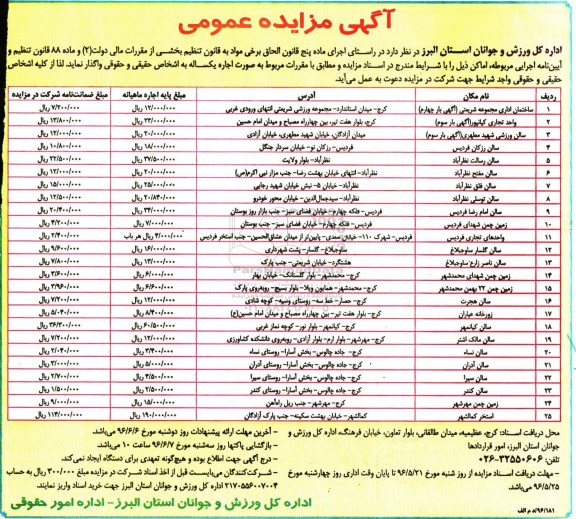 آگهی مزایده عمومی
اداره کل ورزش و جوانان استان البرز در نظر دارد در راستای اجرای ماده پنج قانون الحاق برخی مواد به قانون تنظیم بخشی از مقررات مالی دولت(۲) و ماده ۸۸ قانون تنظیم و
آیین‌نامه اجرایی مربوطه، اماکن ذیل را با شرایط مندرج در اسناد مزایده و مطابق با مقررات مربوط به صورت اجاره یکساله به اشخاص حقیقی و حقوقی واگذار نماید. لذا از کلیه اشخاص
حقیقی و حقوقی واجد شرایط جهت شرکت در مزایده دعوت به عمل می‌آید.
ردیف نام مکان آدرس مبلغ پایه اجاره ماهیانه مبلغ ضمانتنامه شرکت در مزایده
۱ ساختمان اداری مجموعه شریعتی (آگهی بار چهارم) کرج- میدان استاندارد- مجموعه ورزشی شریعتی انتهای ورودی غربی ۱۲/۰۰۰/۰۰۰ ریال ۷/۲۰۰/۰۰۰ ریال
۲ واحد تجاری کیانپور(آگهی بار سوم) کرج، بلوار هفت تیر، بین چهارراه مصباح و میدان امام حسین ۲۳/۰۰۰/۰۰۰ ریال ۱۳/۸۰۰/۰۰۰ ریال
۳ سالن ورزشی شهید مطهری(آگهی بار سوم) میدان آزادگان، خیابان شهید مطهری، خیابان آزادی ۲۰/۰۰۰/۰۰۰ ریال ۱۲/۰۰۰/۰۰۰ ریال
۴ سالن رزکان فردیس فردیس- رزکان نو- خیابان سردار جنگل ۱۸/۰۰۰/۰۰۰ ریال ۱۰/۸۰۰/۰۰۰ ریال
۵ سالن رسالت نظرآباد نظرآباد- بلوار ولایت ۳۷/۵۰۰/۰۰۰ ریال ۲۲/۵۰۰/۰۰۰ ریال
۶ سالن مفتح نظرآباد نظرآباد- انتهای خیابان بهشت رضا- جنب مزار نبی اکرم(ص) ۲۰/۰۰۰/۰۰۰ ریال ۱۲/۵۰۰/۰۰۰ ریال
۷ سالن فلق نظرآباد نظرآباد- خیابان ۵- نبش خیابان شهید رجایی ۲۵/۰۰۰/۰۰۰ ریال ۱۵/۰۰۰/۰۰۰ ریال
۸ سالن توسلی نظرآباد نظرآباد- سیدجمال‌الدین- خیابان محور خودرو ۲۰/۸۴۰/۰۰۰ ریال ۱۲/۵۰۰/۰۰۰ ریال
۹ سالن امام رضا فردیس فردیس- فلکه چهارم- خیابان فضای سبز- جنب بازار روز بوستان ۳۴/۰۰۰/۰۰۰ ریال ۲۰/۴۰۰/۰۰۰ ریال
۱۰ زمین چمن شهدای فردیس فردیس- فلکه چهارم- خیابان فضای سبز- جنب بوستان ۷/۰۰۰/۰۰۰ ریال ۴/۲۰۰/۰۰۰ ریال
۱۱ واحدهای تجاری فردیس فردیس- شهرک ۱۱۰- خیابان سعدی- پایین‌تر از میدان عشاق‌الحسین- جنب استخر فردیس ۴/۰۰۰/۰۰۰ ریال هر باب ۲/۴۰۰/۰۰۰ ریال
۱۲ سالن گلسار ساوجبلاغ ساوجبلاغ- گلسار- پشت شهرداری ۱۶/۰۰۰/۰۰۰ ریال ۹/۶۰۰/۰۰۰ ریال
۱۳ سالن ناصر زارع ساوجبلاغ هشتگرد- خیابان شریعتی- جنب پارک ۱۳/۰۰۰/۰۰۰ ریال ۷/۸۰۰/۰۰۰ ریال
۱۴ زمین چمن شهدای محمدشهر کرج- محمدشهر- بلوار گلستانک- خیابان بهار ۶/۰۰۰/۰۰۰ ریال ۳/۶۰۰/۰۰۰ ریال
۱۵ زمین چمن ۲۲ بهمن محمدشهر کرج- محمدشهر- همایون ویلا- بلوار بسیج- روبه‌روی پارک ۶/۶۰۰/۰۰۰ ریال ۳/۹۶۰/۰۰۰ ریال
۱۶ سالن هجرت کرج- حصار- خط سه- روستای وسیه- کوچه شادی ۱۲/۰۰۰/۰۰۰ ریال ۷/۲۰۰/۰۰۰ ریال
۱۷ زورخانه عیاران کرج- بلوار هفت تیر- بین چهارراه مصباح و میدان امام حسین(ع) ۸/۴۰۰/۰۰۰ ریال ۵/۰۴۰/۰۰۰ ریال
۱۸ سالن کیانمهر کرج- کیانمهر- بلوار نور- کوچه نماز غربی ۶۰/۵۰۰/۰۰۰ ریال ۳۶/۳۰۰/۰۰۰ ریال
۱۹ سالن مالک اشتر کرج- مهرشهر- بلوار ارم- بلوار آزادی- روبه‌روی دانشکده کشاورزی ۱۲/۰۰۰/۰۰۰ ریال ۷/۲۰۰/۰۰۰ ریال
۲۰ سالن نساء کرج- جاده چالوس- بخش آسارا- روستای نساء ۳/۴۰۰/۰۰۰ ریال ۲/۰۴۰/۰۰۰ ریال
۲۱ سالن آدران کرج- جاده چالوس- بخش آسارا- روستای آدران ۵/۰۰۰/۰۰۰ ریال ۳/۰۰۰/۰۰۰ ریال
۲۲ سالن سیرا کرج- جاده چالوس- بخش آسارا- روستای سیرا ۴/۵۰۰/۰۰۰ ریال ۲/۷۰۰/۰۰۰ ریال
۲۳ سالن کندر کرج- جاده چالوس- بخش آسارا- روستای کندر ۲/۵۰۰/۰۰۰ ریال ۱/۵۰۰/۰۰۰ ریال
۲۴ زمین چمن مهرشهر کرج- مهرشهر- جنب ریل راه‌آهن ۱۵/۰۰۰/۰۰۰ ریال ۹/۰۰۰/۰۰۰ ریال
۲۵ استخر کمالشهر کمالشهر- خیابان بهشت سکینه- جنب پارک آزادگان ۱۹۰/۰۰۰/۰۰۰ ریال ۱۱۴/۰۰۰/۰۰۰ ریال
محل دریافت اسناد: کرج، عظیمیه، میدان طالقانی، بلوار تعاون، خیابان فرهنگ، اداره کل ورزش و
جوانان استان البرز، امور قراردادها
تلفن: ۳۲۵۵۰۶۰۶-۰۲۶
- مهلت دریافت اسناد مزایده از روز شنبه مورخ ۹۶/۵/۲۱ تا پایان وقت اداری روز چهارشنبه مورخ
۹۶/۵/۲۵ می‌باشد.
- آخرین مهلت ارائه پیشنهادات روز دوشنبه مورخ ۹۶/۶/۶ می‌باشد.
- بازگشایی پاکتها روز سه‌شنبه مورخ ۹۶/۶/۷ ساعت ۱۰ می‌باشد.
- درج آگهی جهت اطلاع بوده و هیچ‌گونه تعهدی برای دستگاه ایجاد نمی‌کند.
- شرکت‌کنندگان می‌بایست قبل از اخذ اسناد شرکت در مزایده مبلغ ۳۰۰/۰۰۰ ریال به حساب
۲۱۷۰۵۵۶۰۰۷۰۰۴ اداره کل ورزش و جوانان استان البرز جهت خرید اسناد واریز نمایند.
اداره کل ورزش و جوانان استان البرز- اداره امور حقوقی
۹۶/۱۸۱/د.م الف